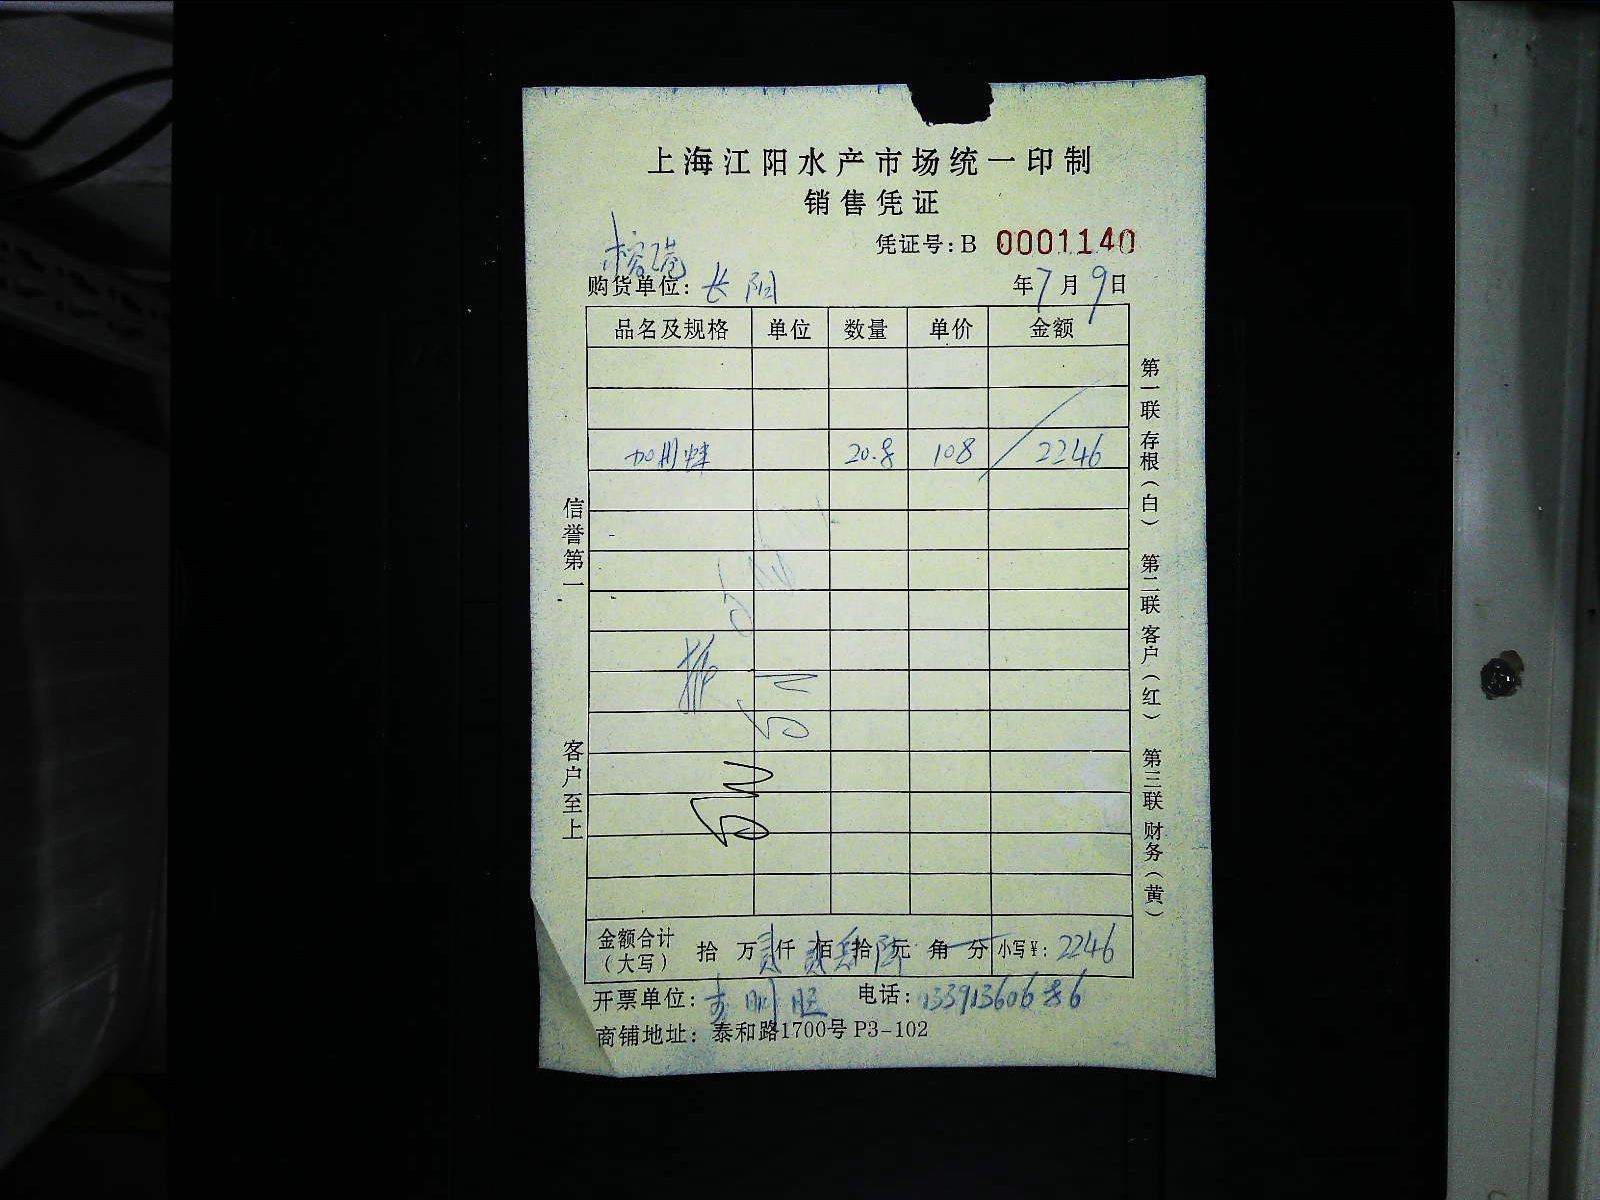 上海江阳水产市场统一印制
销售凭证
凭证号:B 0001140
榕港
购货单位: 长阳
年7月9日
品名及规格 单位 数量 单价 金额
加州鲈 20.8 108 2246
信誉第一
客户至上
第一联 存根(白) 第二联 客户(红) 第三联 财务(黄)
金额合计(大写) 拾万贰仟贰佰肆拾陆元角分 小写¥: 2246
开票单位: 李明
电话: 133913606
商铺地址: 泰和路1700号P3-102